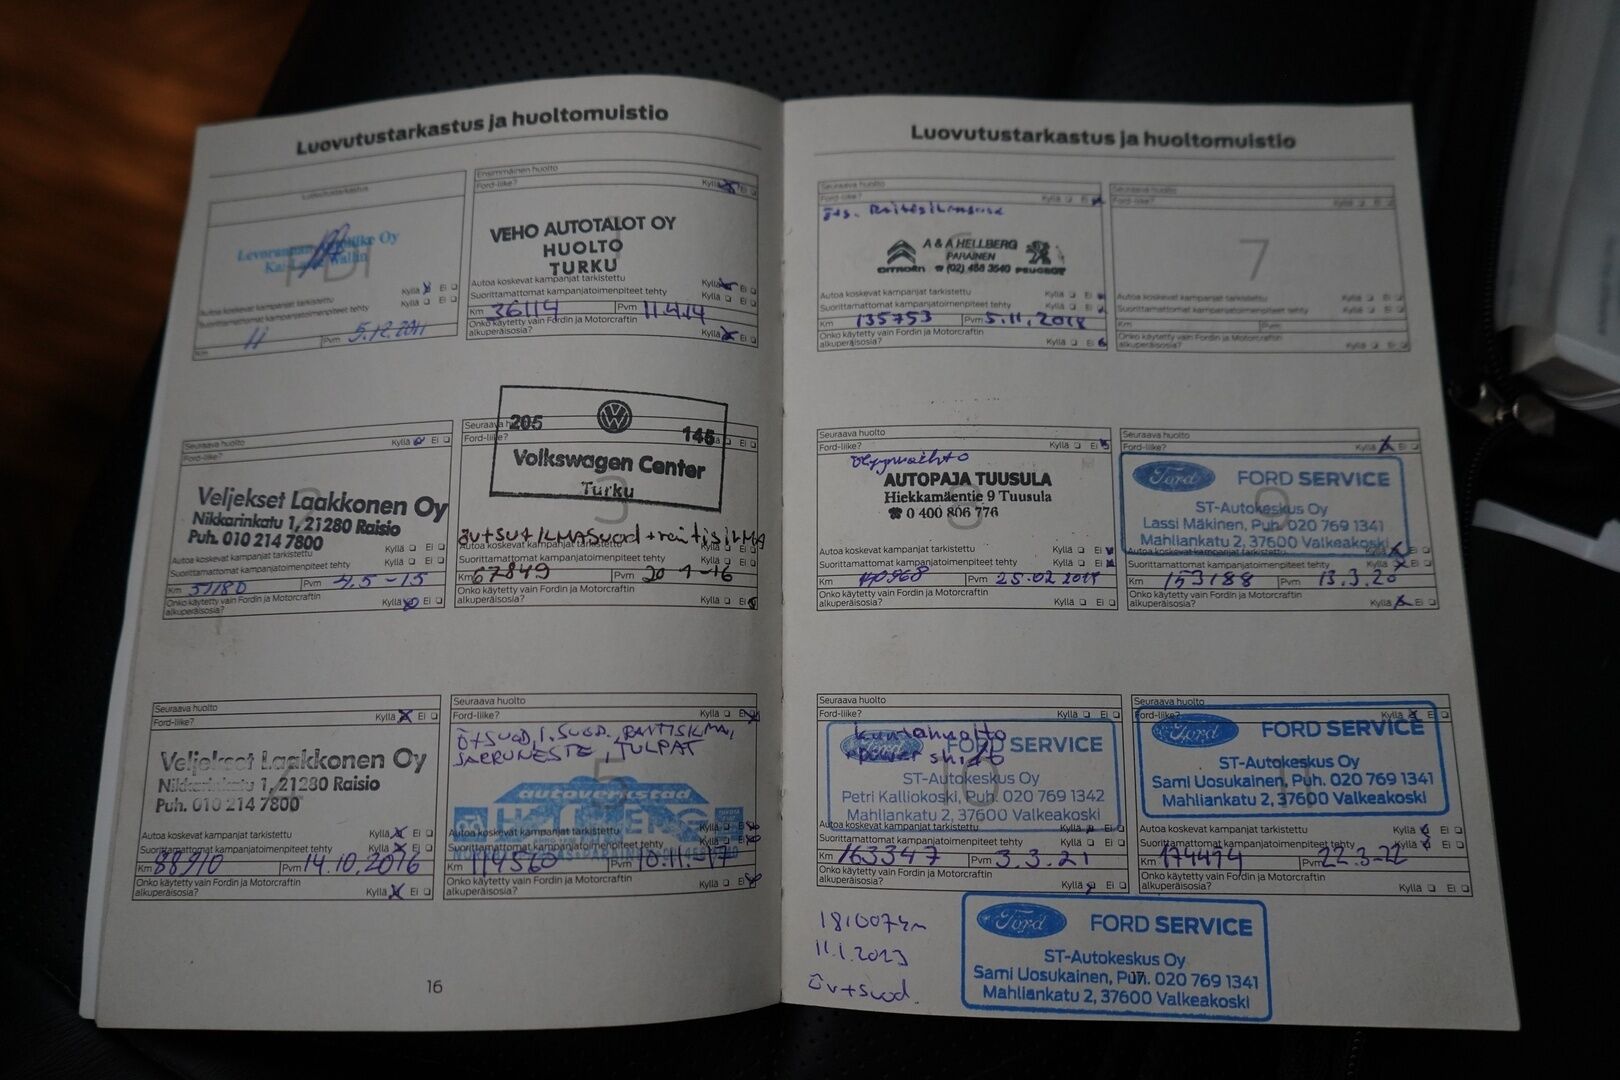 Luovutustarkastus ja huoltomuistio
Luovutustarkastus
PDI
Autoa koskevat kampanjat tarkistettu Kyllä Ei
Suorittamattomat kampanjatoimenpiteet tehty Kyllä Ei
Km 11 Pvm 5.12.2011
Ensimmäinen huolto
Ford-liike? Kyllä Ei
1
VEHO AUTOTALOT OY
HUOLTO
TURKU
Autoa koskevat kampanjat tarkistettu Kyllä Ei
Suorittamattomat kampanjatoimenpiteet tehty Kyllä Ei
Km 36114 Pvm 11.4.14
Onko käytetty vain Fordin ja Motorcraftin
alkuperäisosia? Kyllä Ei
Seuraava huolto Kyllä Ei
Ford-liike?
2
Veljekset Laakkonen Oy
Nikkarinkatu 1, 21280 Raisio
Puh. 010 214 7800
Autoa koskevat kampanjat tarkistettu Kyllä Ei
Suorittamattomat kampanjatoimenpiteet tehty Kyllä Ei
Km 51180 Pvm 4.5-15
Onko käytetty vain Fordin ja Motorcraftin
alkuperäisosia? Kyllä Ei
Seuraava huolto
Ford-liike?
205 145
Volkswagen Center
Turku
3
öv+sut ILMAsuod + raitisilMA
Autoa koskevat kampanjat tarkistettu Kyllä Ei
Suorittamattomat kampanjatoimenpiteet tehty Kyllä Ei
Km 67849 Pvm 20-1-16
Onko käytetty vain Fordin ja Motorcraftin
alkuperäisosia? Kyllä Ei
Seuraava huolto
Ford-liike? Kyllä Ei
4
Veljekset Laakkonen Oy
Nikkarinkatu 1, 21280 Raisio
Puh. 010 214 7800
Autoa koskevat kampanjat tarkistettu Kyllä Ei
Suorittamattomat kampanjatoimenpiteet tehty Kyllä Ei
Km 88910 Pvm 14.10.2016
Onko käytetty vain Fordin ja Motorcraftin
alkuperäisosia? Kyllä Ei
Seuraava huolto
Ford-liike? Kyllä Ei
Ö+SUOD, I.SUOD. RAITISILMA,
JARRUNESTE, TULPAT
5
autoverkstad
Autoa koskevat kampanjat tarkistettu Kyllä Ei
Suorittamattomat kampanjatoimenpiteet tehty Kyllä Ei
Km 114560 Pvm 10.11.-17
Onko käytetty vain Fordin ja Motorcraftin
alkuperäisosia? Kyllä Ei
16
Luovutustarkastus ja huoltomuistio
Seuraava huolto
Ford-liike? Kyllä Ei
Raitisilmasuod
6
A & A HELLBERG
PARAINEN
CITROËN (02) 458 3540 PEUGEOT
Autoa koskevat kampanjat tarkistettu Kyllä Ei
Suorittamattomat kampanjatoimenpiteet tehty Kyllä Ei
Km 135753 Pvm 5.11.2018
Onko käytetty vain Fordin ja Motorcraftin
alkuperäisosia? Kyllä Ei
Seuraava huolto
Ford-liike? Kyllä Ei
7
Autoa koskevat kampanjat tarkistettu Kyllä Ei
Suorittamattomat kampanjatoimenpiteet tehty Kyllä Ei
Km Pvm
Onko käytetty vain Fordin ja Motorcraftin
alkuperäisosia? Kyllä Ei
Seuraava huolto
Ford-liike? Kyllä Ei
öljynvaihto
8
AUTOPAJA TUUSULA
Hiekkamäentie 9 Tuusula
☎ 0 400 806 776
Autoa koskevat kampanjat tarkistettu Kyllä Ei
Suorittamattomat kampanjatoimenpiteet tehty Kyllä Ei
Km 140968 Pvm 25.02.2019
Onko käytetty vain Fordin ja Motorcraftin
alkuperäisosia? Kyllä Ei
Seuraava huolto
Ford-liike? Kyllä Ei
9
Ford FORD SERVICE
ST-Autokeskus Oy
Lassi Mäkinen, Puh. 020 769 1341
Mahliankatu 2, 37600 Valkeakoski
Autoa koskevat kampanjat tarkistettu Kyllä Ei
Suorittamattomat kampanjatoimenpiteet tehty Kyllä Ei
Km 153188 Pvm 13.3.20
Onko käytetty vain Fordin ja Motorcraftin
alkuperäisosia? Kyllä Ei
Seuraava huolto
Ford-liike? Kyllä Ei
kuntohuolto
+powershift
10
Ford FORD SERVICE
ST-Autokeskus Oy
Petri Kalliokoski, Puh. 020 769 1342
Mahliankatu 2, 37600 Valkeakoski
Autoa koskevat kampanjat tarkistettu Kyllä Ei
Suorittamattomat kampanjatoimenpiteet tehty Kyllä Ei
Km 163347 Pvm 3.3.21
Onko käytetty vain Fordin ja Motorcraftin
alkuperäisosia? Kyllä Ei
Seuraava huolto
Ford-liike? Kyllä Ei
11
Ford FORD SERVICE
ST-Autokeskus Oy
Sami Uosukainen, Puh. 020 769 1341
Mahliankatu 2, 37600 Valkeakoski
Autoa koskevat kampanjat tarkistettu Kyllä Ei
Suorittamattomat kampanjatoimenpiteet tehty Kyllä Ei
Km 174414 Pvm 22.3-22
Onko käytetty vain Fordin ja Motorcraftin
alkuperäisosia? Kyllä Ei
181007km
11.1.2023
öv+suod.
Ford FORD SERVICE
ST-Autokeskus Oy
Sami Uosukainen, Puh. 020 769 1341
Mahliankatu 2, 37600 Valkeakoski
17